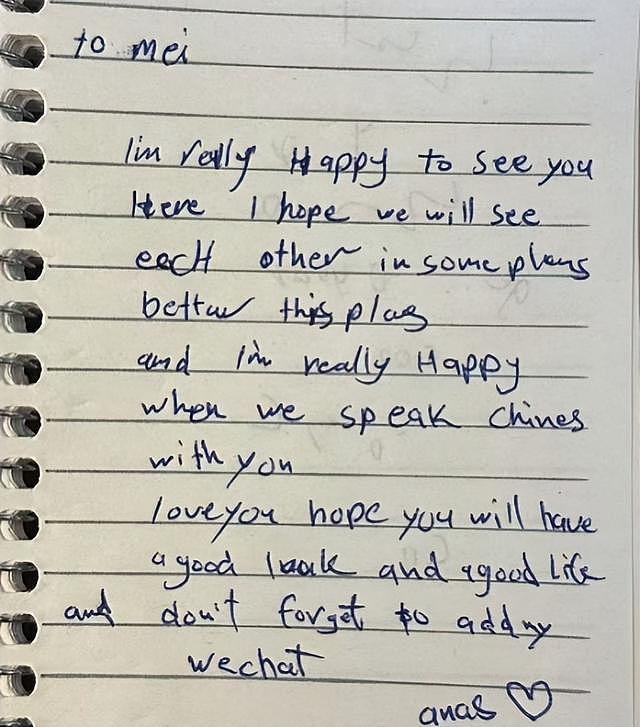 to mei
I'm really Happy to see you
Here I hope we will see
eecH other in some plans
bettar this plas
and I'm really Happy
when we speak Chines
with you
love you hope you will have
a good luak and a good Life
and don't forget to add my
wechat
anas ♡